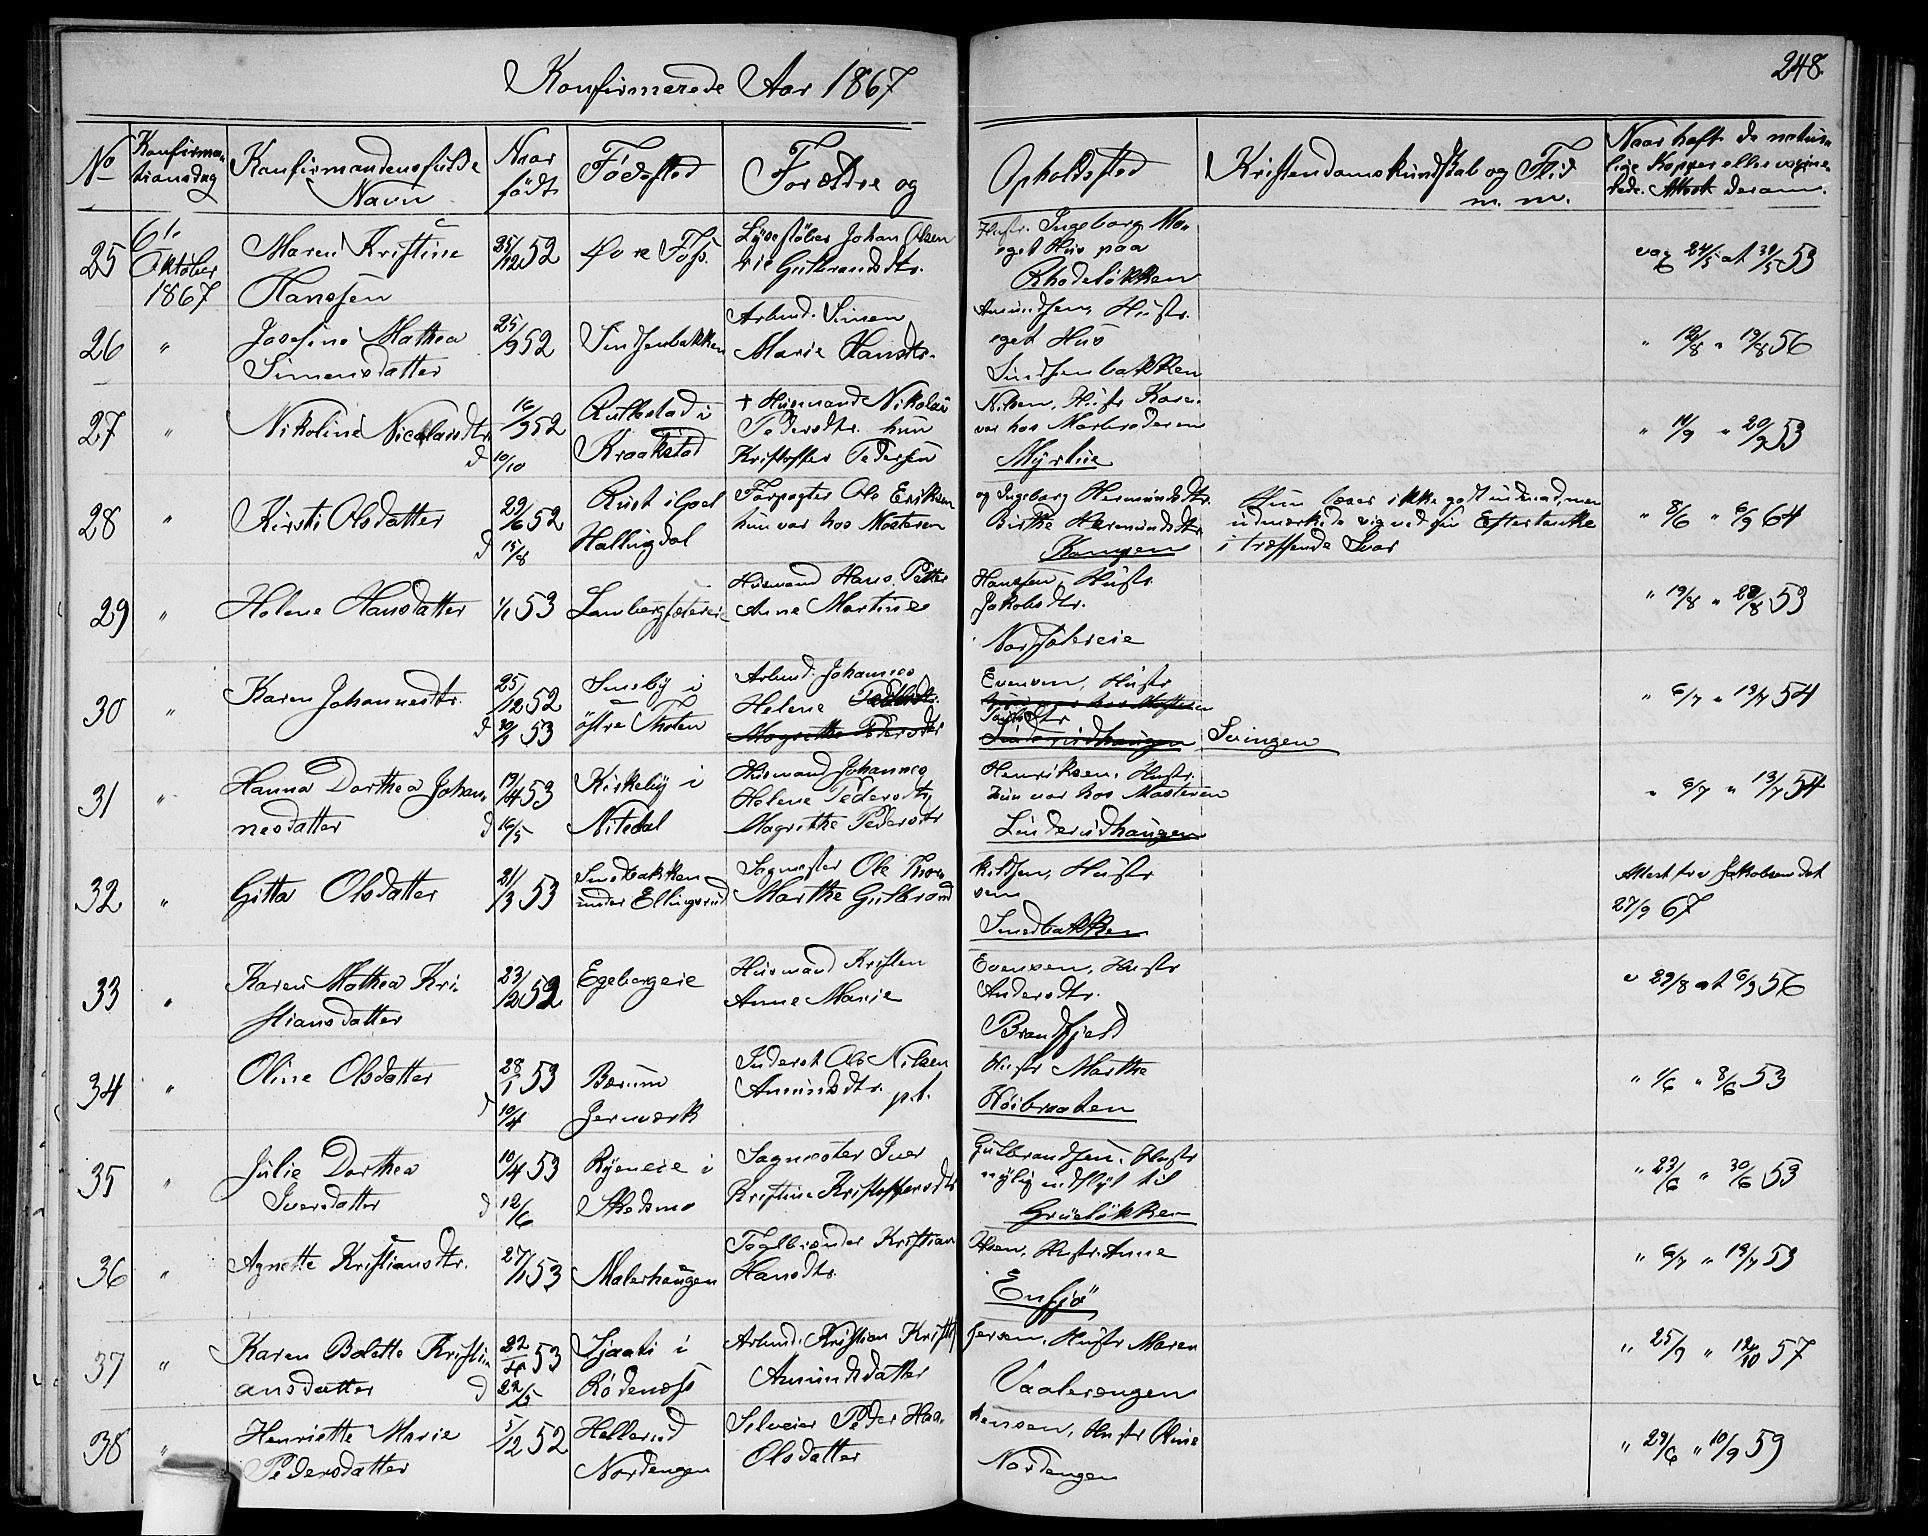 Konfirmerede Aar 1867
248.
No
Konfirma-
tionsdag
Konfirmandens fulde
Navn
Naar
født
Fødested
Forældre og
Opholdssted
Kristendomskundskab og Flid
m. m.
Naar havte de natur-
lige Kopper eller vaccine-
rede. Attest derom.
25
6te
Oktober
1867
Maren Kristine
Hanssen
25/12 52
Øvre Foss.
Lysestøber Johan Olsen
Gulbrandsdtr.
Hustr. Ingeborg Ma-
eget Hus paa
Rhodeløkken
vac 24/5 at 31/5 53
26
"
Josefine Mathea
Simensdatter
25/9 52
Sinsenbakken
Arbmd. Simen
Marie Hansdtr.
Amundsen, Hustr.
eget Hus
Sinsenbakken
" 12/8 " 19/8 56
27
"
Nikoline Nicolaisdtr.
16/9 52
d 10/10
Rullestad i
Kraakstad
+ Husmand Nikolai
Pedersdtr. hun
Kristoffer Pedersen
Nilsen, Hustr Karen
var hos Morbroderen
Myrlie
" 11/9 " 20/9 53
28
"
Kirsti Olsdatter
29/6 52
d 15/8
Rust i Goel
Hallingdal
Forpagter Ole Eriksen
hun var hos Mosteren
og Ingeborg Hermundsdtr.
Birthe Hermundsdtr.
Kampen
Hun læser ikke godt indenad men
udmærkede sig ved sin Eftertanke
i træffende Svar
" 8/6 " 6/9 64
29
"
Helene Hansdatter
1/1 53
Lambergsæterei
Husmand Hans Petter
Anne Martine
Hanssen, Hustr.
Jakobsdtr.
" 19/8 " 28/8 53
30
"
Karen Johannesdtr.
25/12 52
d 30/1 53
Smeby i
østre Thoten
Arbmd. Johannes
Helene
Magrethe Pedersdtr
Evensen, Hustr
hun var hos Mosteren
Linderudhaugen
Svingen
" 6/7 " 13/7 54
31
"
Hanna Dorthea Johan-
nesdatter
19/4 53
d 16/5
Kirkeby i
Nitedal
Husmand Johannes
Helene Pedersdtr
Magrethe Pedersdtr
Henriksen. Hustr.
hun var hos Mosteren
Linderudhaugen
" 6/7 " 13/7 54
32
"
Gitta Olsdatter
21/3 53
Smedbakken
under Ellingsrud
Sagmester Ole Thor-
Marthe Gulbrand
kildsen, Hustr
sen
Smedbakken
Attest fra Jakobsen dat
27/9 67
33
"
Karen Mathea Kri-
stiansdatter
23/12 52
Egebergeie
Husmand Kristen
Anne Marie
Evensen, Hustr
Andersdtr.
Brandfjeld
v 29/8 at 6/9 56
34
"
Oline Olsdatter
28/1 53
d 10/4
Bærum
Jernværk
Inderst Ole Nilsen
Amundsdtr. p.t.
Hustr Marthe
Høibraaten
" 1/6 " 8/6 53
35
"
Julie Dorthea
Iversdatter
10/4 53
d 12/6
Ryeneie i
Skedsmo
Sagmester Iver
Kristine Kristoffersdtr
Gulbrandsen. Hustr
nylig indflyt til
Grüeløkken
" 23/6 " 30/6 53
36
"
Agnette Kristiansdtr.
27/1 53
Malerhaugen
Teglbrænder Kristian
Hansdtr.
Olsen, Hustr. Anne
Ensjø
" 6/7 " 13/7 53
37
"
Karen Bolette Kristi-
ansdatter
22/4 53
d 22/5
Rødenæss
Arbmd. Kristian Krist
Amundsdatter
fersen, Hustr Maren
Vaalerengen
" 25/9 " 12/10 57
38
"
Henriette Marie
Pedersdatter
5/12 52
Hellerud
Nordengen
Selveier Peder Han-
Olsdatter
hensen, Hustr Oline
Nordengen
" 29/6 " 10/9 59